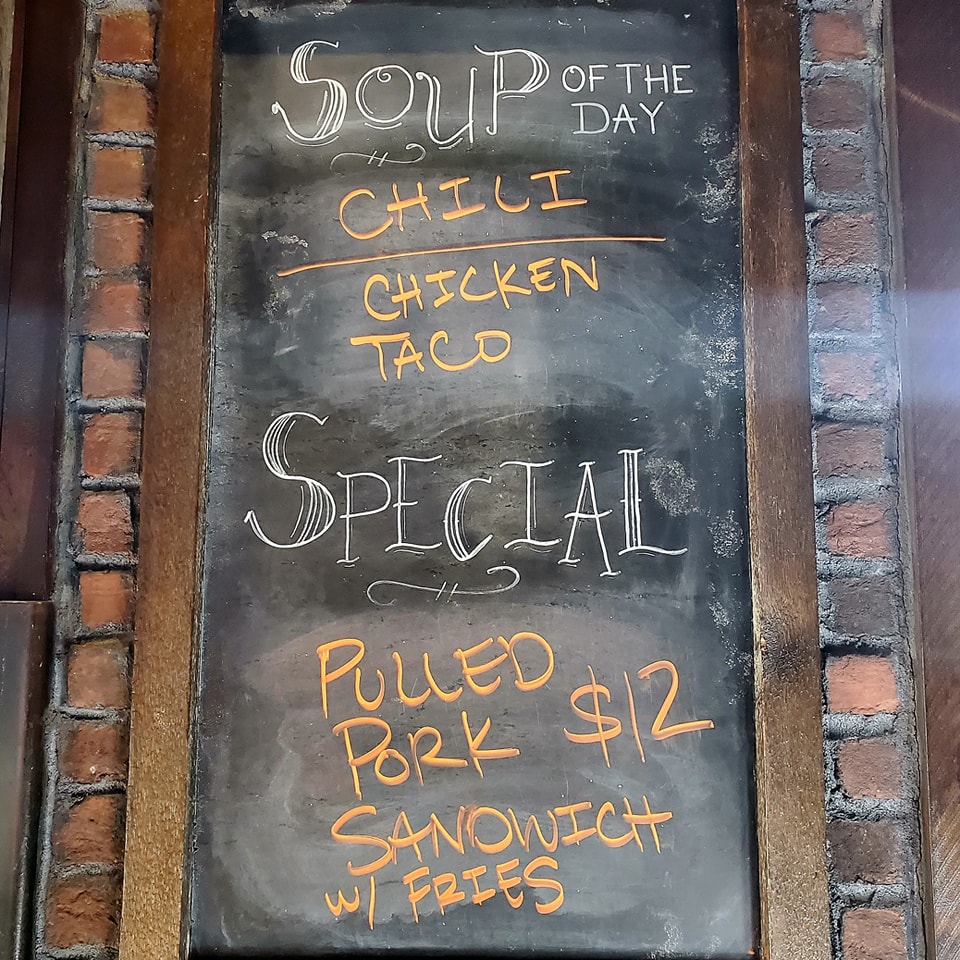 SOUP OF THE DAY
CHILI
CHICKEN
TACO
SPECIAL
PULLED
PORK $12
SANDWICH
W/ FRIES